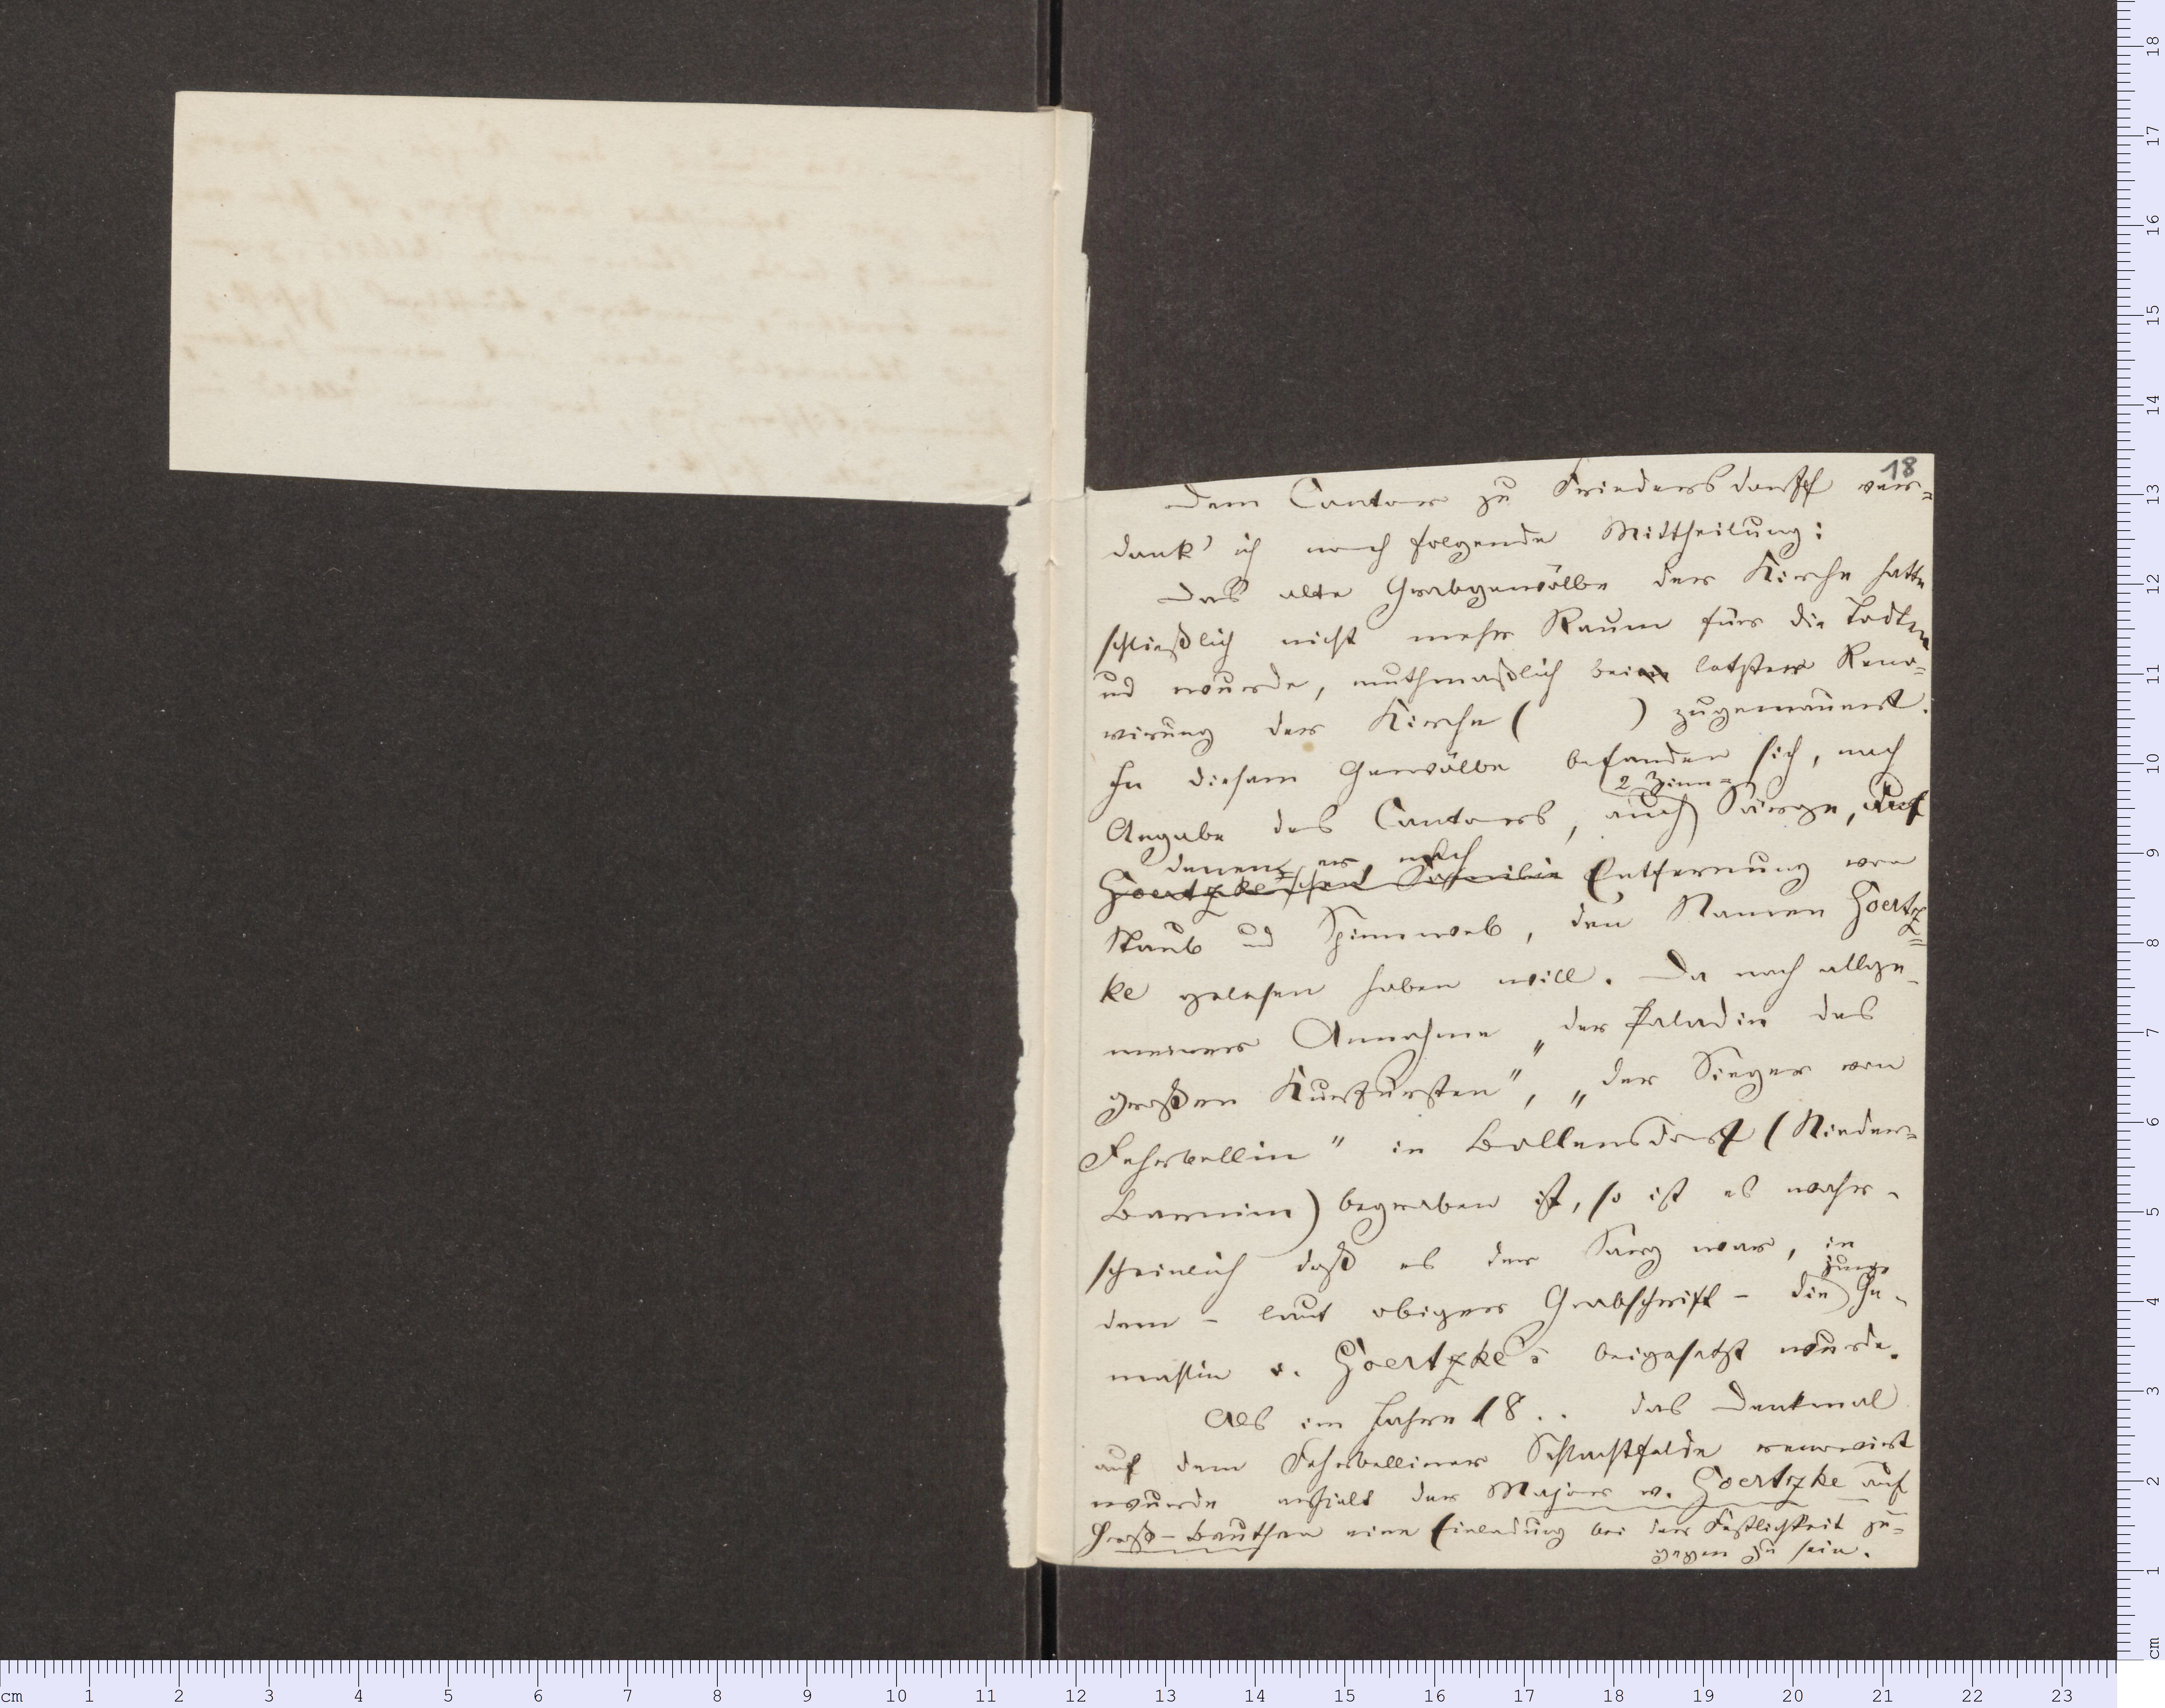 18
Dem Cantor zu Friedersdorff ver=
dank' ich noch folgende Mittheilung:
Das alte Grabgewölbe der Kirche hatte
schließlich nicht mehr Raum für die Todten
und wurde, muthmaßlich bei letzter Reno=
virung der Kirche ( ) zugemauert.
In diesem Gewölbe befanden sich, nach
2 Zinn=
Angabe des Cantors, auch Särge, auf
denen er nach
Goertzke'schen Familie Entfernung von
Staub und Spinnweb, den Namen Goertz=
ke gelesen haben will. Da nach allge-
meiner Annahme „der Paladin des
großen Kurfürsten", „der Sieger von
Fehrbellin" in Bollensdorf (Nieder=
Barnim) begraben ist, so ist es wahr-
scheinlich daß es der Sarg war, in
dem – laut obiger Grabschrift – die junge Ge-
mahlin v. Goertzke's beigesetzt wurde.
Als im Jahre 18.. das Denkmal
auf dem Fehrbelliner Schlachtfelde renovirt
wurde erhielt der Major v. Goertzke auf
Groß-Beuthen eine Einladung bei der Festlichkeit zu=
gegen zu sein.